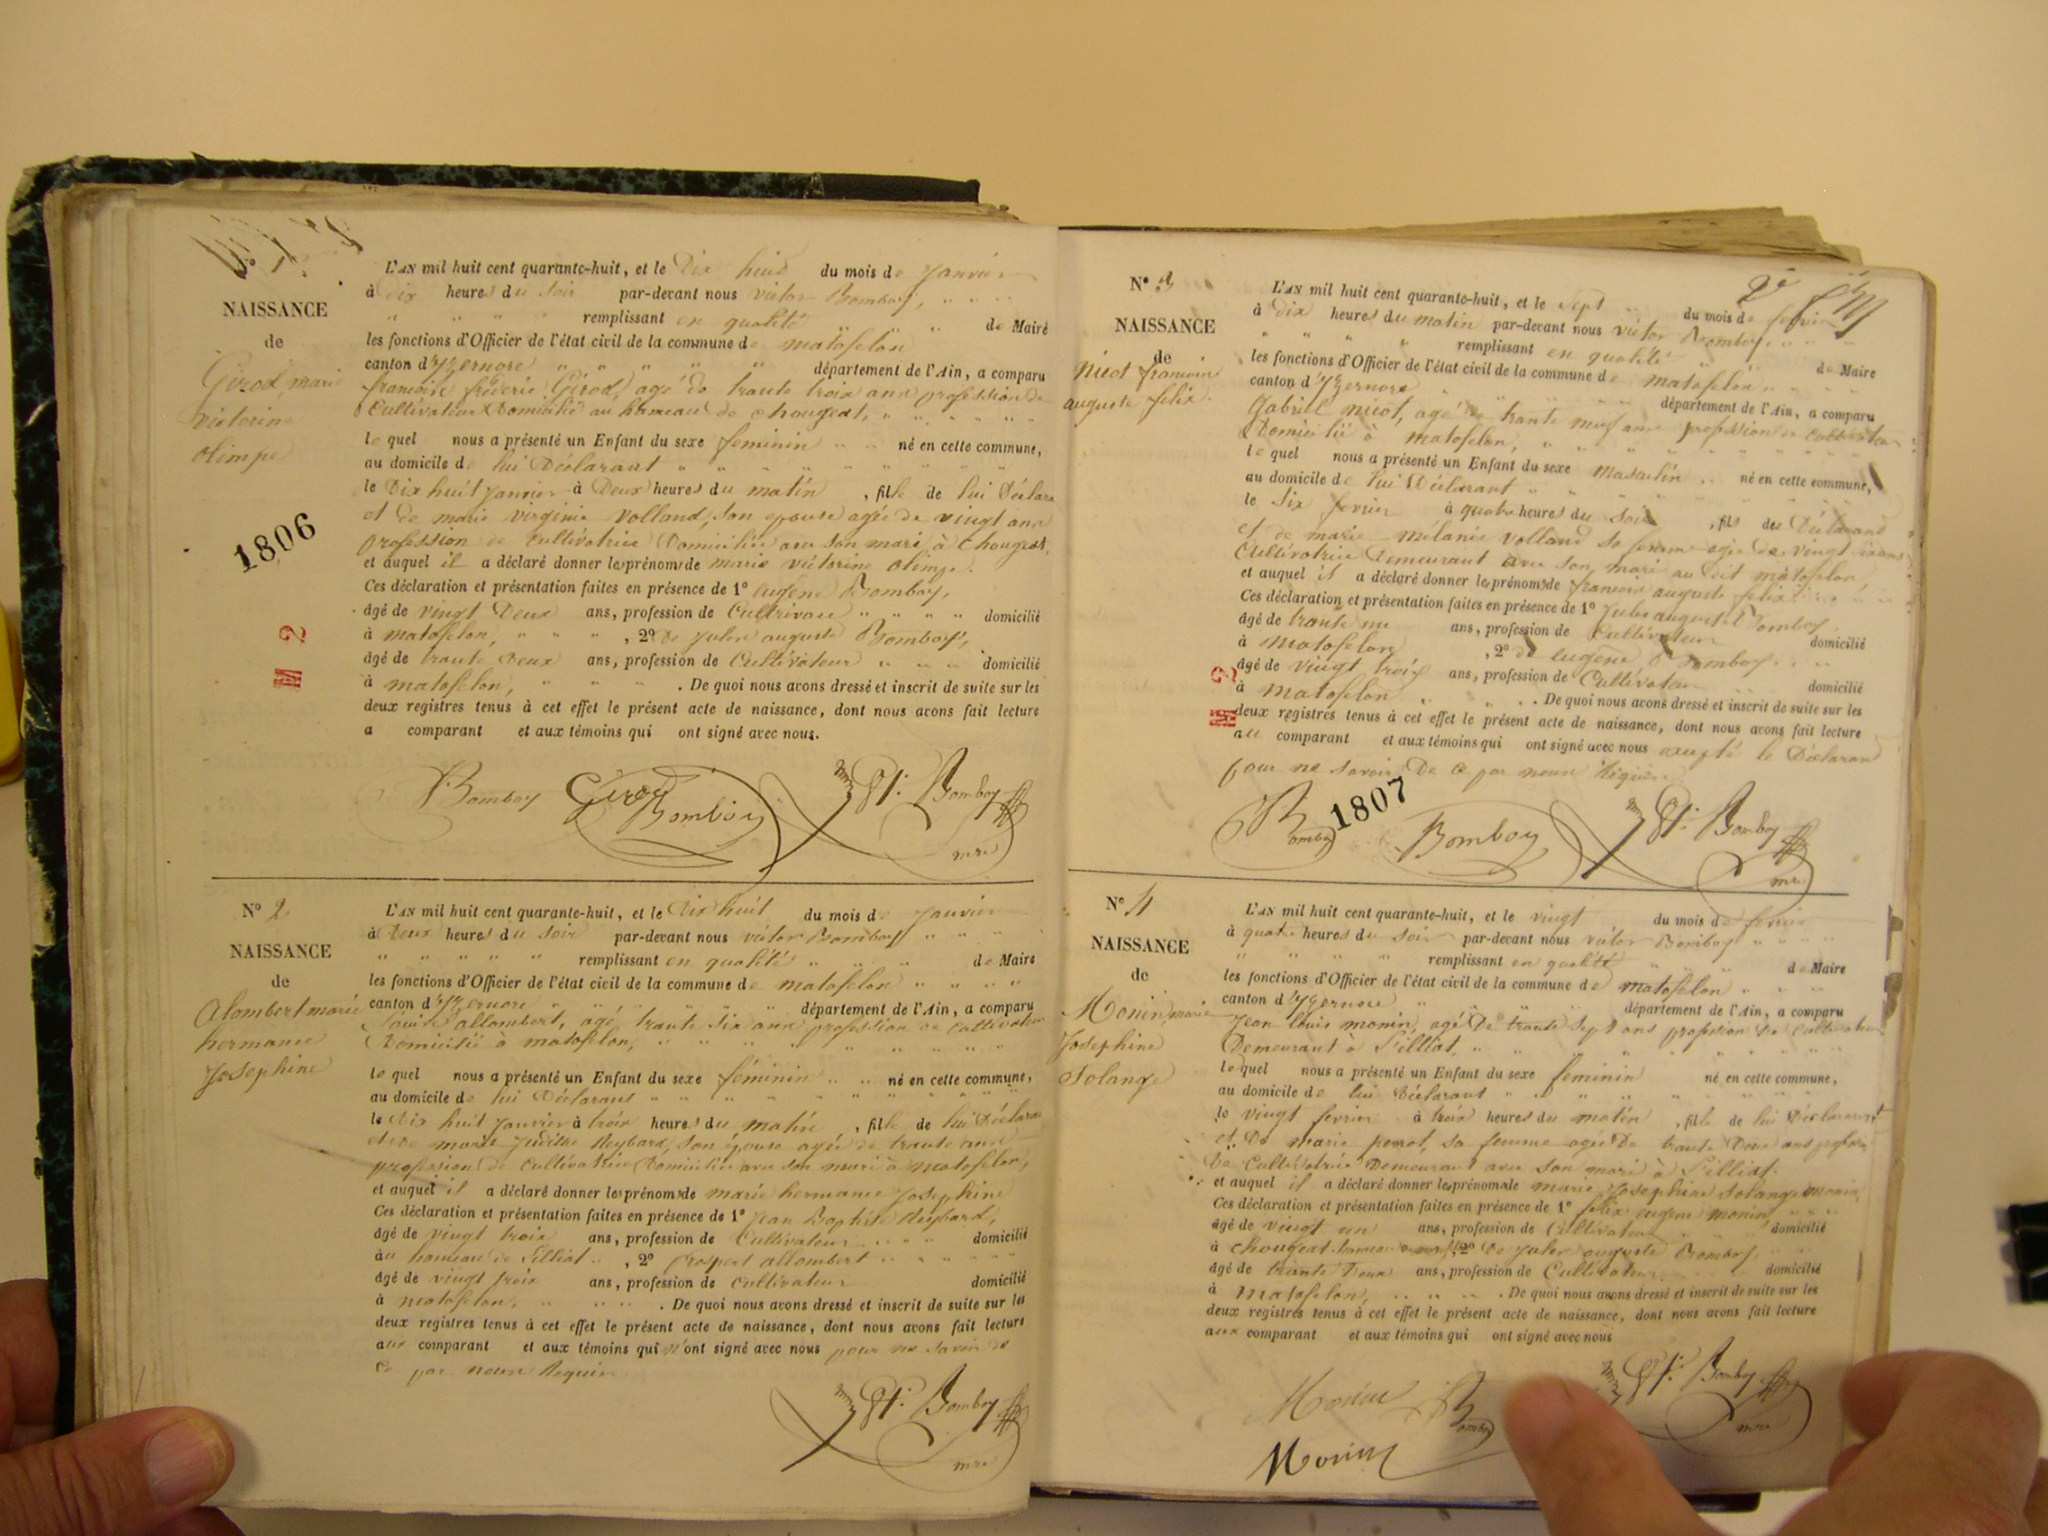 NAISSANCE
de
Girod, marie
victorine
olimpe
1806
M 2
L'AN mil huit cent quarante-huit, et le Dix huit du mois de Janvier
à dix heures du soir par-devant nous victor Bomboy,
remplissant en qualité de Maire
les fonctions d'Officier de l'état civil de la commune de matafelon
canton d'Yzernore département de l'Ain, a comparu
françois Girod, agé de trante trois ans profession de
Cultivateur Domicilié au hameau de Chougeat,
lequel nous a présenté un Enfant du sexe feminin né en cette commune,
au domicile de lui Déclarant
le Dix huit Janvier à Deux heures du matin, fille de lui Déclarant
et de marie virginie volland, son epouse agée de vingt ans
profession de Cultivatrice Domiciliée avec son mari à Chougeat,
et auquel il a déclaré donner les prénoms de marie victorine olimpe.
Ces déclaration et présentation faites en présence de 1° eugène Bomboy,
âgé de vingt Deux ans, profession de domicilié
à matafelon, , 2° de Jules auguste Bomboy,
âgé de trante Deux ans, profession de Cultivateur domicilié
à matafelon, . De quoi nous avons dressé et inscrit de suite sur les
deux registres tenus à cet effet le présent acte de naissance, dont nous avons fait lecture
a comparant et aux témoins qui ont signé avec nous.
Bomboy Girod Bomboy Bomboy
mre
N° 2
NAISSANCE
de
Alombert marie
hermance
Josephine
L'AN mil huit cent quarante-huit, et le Dix huit du mois de Janvier
à Deux heures du soir par-devant nous victor Bomboy
remplissant en qualité de Maire
les fonctions d'Officier de l'état civil de la commune de matafelon
canton d'Yzernore département de l'Ain, a comparu
allombert, agé trante six ans profession de Cultivateur
Domicilié à matafelon,
lequel nous a présenté un Enfant du sexe féminin né en cette commune,
au domicile de lui Déclarant
le Dix huit Janvier à trois heures du matin, fille de lui Déclarant
et de marie Judithe Reybard, son épouse agée de trante ans
profession de Cultivatrice Domiciliée avec son mari à matafelon,
et auquel il a déclaré donner les prénoms de marie hermance Josephine
Ces déclaration et présentation faites en présence de 1° Jean Baptiste Reybard,
âgé de vingt trois ans, profession de Cultivateur domicilié
au hameau de Silliat, 2° prospert allombert
âgé de vingt trois ans, profession de cultivateur domicilié
à matafelon, . De quoi nous avons dressé et inscrit de suite sur les
deux registres tenus à cet effet le présent acte de naissance, dont nous avons fait lecture
aux comparant et aux témoins qui n'ont signé avec nous pour ne savoir de
ce par nous Requis
Bomboy
mre
N° 3
NAISSANCE
de
Nicot françois
auguste felix.
M 2
L'AN mil huit cent quarante-huit, et le sept du mois de fevrier
à dix heures du matin par-devant nous victor Bomboy
remplissant en qualité de Maire
les fonctions d'Officier de l'état civil de la commune de matafelon
canton d'Yzernore département de l'Ain, a comparu
Gabriel nicot, agé de trante neuf ans profession de Cultivateur
Domicilié à matafelon,
lequel nous a présenté un Enfant du sexe masculin né en cette commune,
au domicile de lui Déclarant
le six fevrier à quatre heures du soir, fils du Déclarand
et de marie mélanie volland sa femme agée de vingt ans
Cultivatrice Demeurant avec son mari au dit matafelon,
et auquel il a déclaré donner les prénoms de françois auguste felix
Ces déclaration et présentation faites en présence de 1° Jules auguste Bomboy,
âgé de trante ans, profession de Cultivateur domicilié
à matafelon , 2° de eugène Bomboy
âgé de vingt trois ans, profession de Cultivateur domicilié
à matafelon . De quoi nous avons dressé et inscrit de suite sur les
deux registres tenus à cet effet le présent acte de naissance, dont nous avons fait lecture
au comparant et aux témoins qui ont signé avec nous excepté le Déclaran
pour ne savoir De ce par nous Réquis
1807
Bomboy Bomboy Bomboy
mre
N° 4
NAISSANCE
de
Monin marie
Josephine
Solange
L'AN mil huit cent quarante-huit, et le vingt du mois de fevrier
à quatre heures du soir par-devant nous victor Bomboy
remplissant en qualité de Maire
les fonctions d'Officier de l'état civil de la commune de matafelon
canton d'Yzernore département de l'Ain, a comparu
Jean louis monin, agé De trante sept ans profession de Cultivateur
Demeurant à Silliat,
lequel nous a présenté un Enfant du sexe feminin né en cette commune,
au domicile de lui Déclarant
le vingt fevrier à trois heures du matin, fille de lui Déclarant
et De marie perrot, sa femme agée De trante Deux ans
De Cultivatrice Demeurant avec son mari à Silliat.
et auquel il a déclaré donner les prénoms de marie Josephine Solange monin
Ces déclaration et présentation faites en présence de 1° felix eugene monin
âgé de vingt un ans, profession de Cultivateur domicilié
à Chougeat 2° De Jules auguste Bomboy
âgé de trante Deux ans, profession de Cultivateur domicilié
à matafelon, . De quoi nous avons dressé et inscrit de suite sur les
deux registres tenus à cet effet le présent acte de naissance, dont nous avons fait lecture
aux comparant et aux témoins qui ont signé avec nous
Monin Bomboy Bomboy
mre
Monin